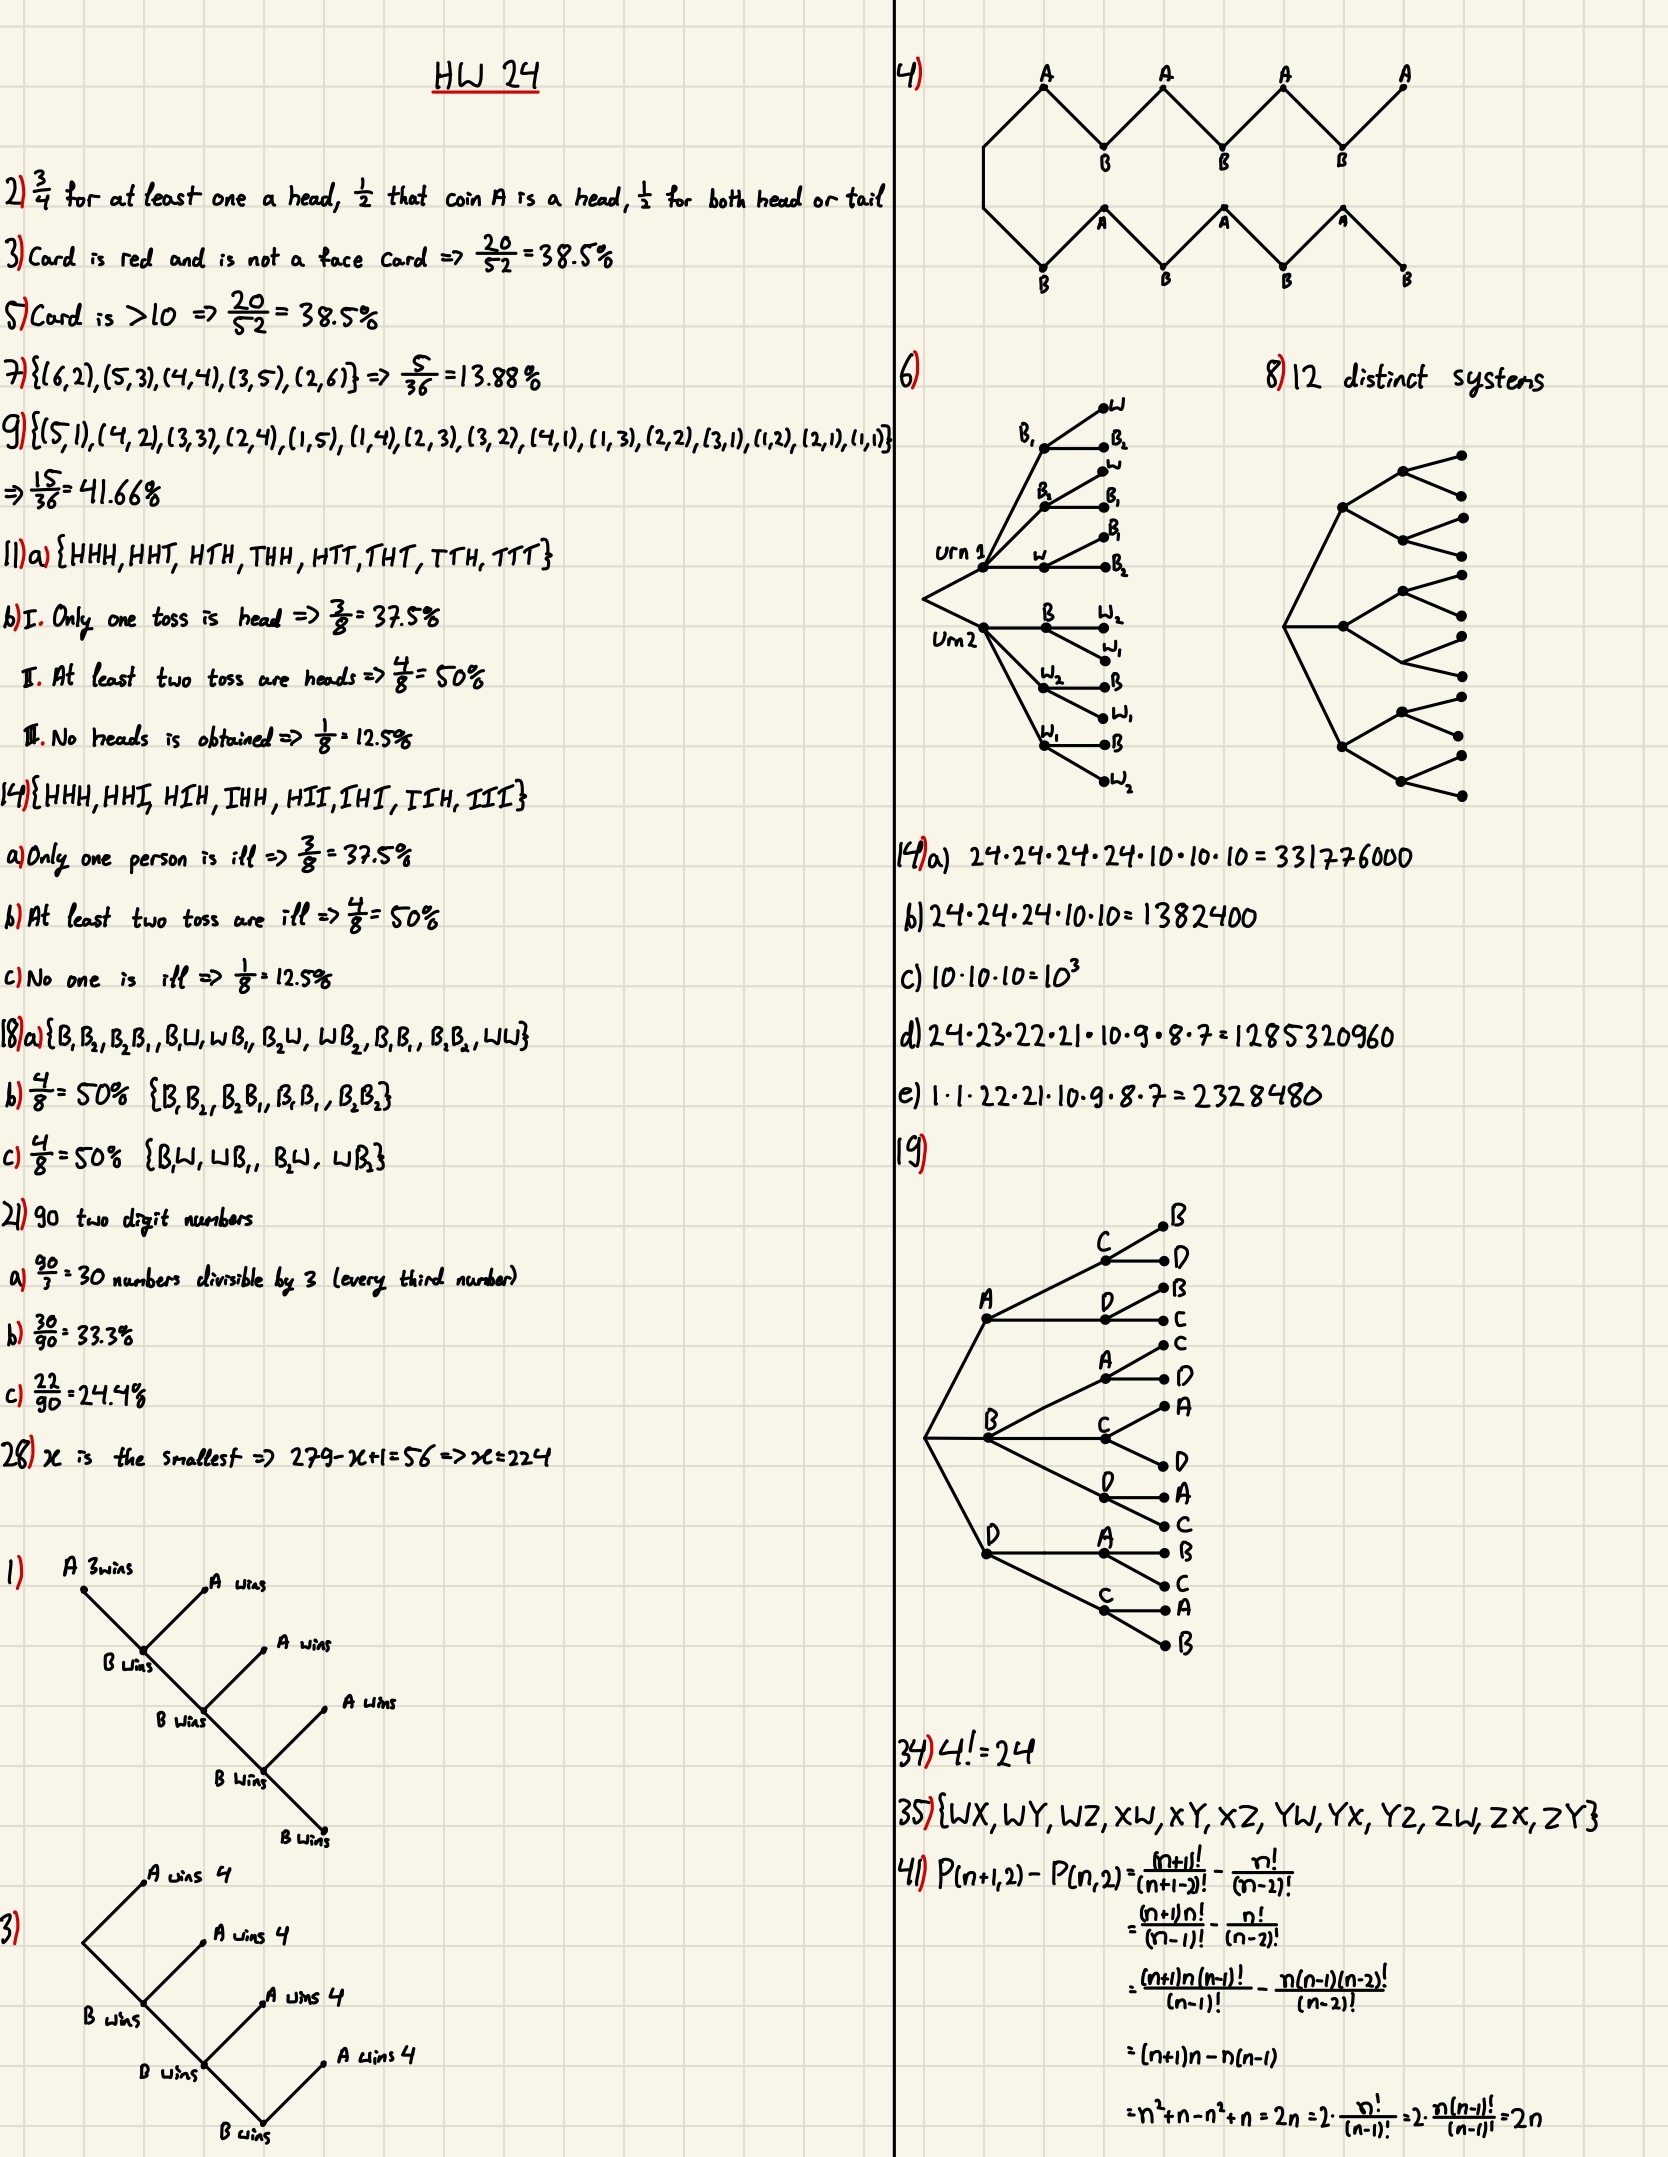 HW 24
2) 3/4 for at least one a head, 1/2 that coin A is a head, 1/2 for both head or tail
3) Card is red and is not a face card => 20/52 = 38.5%
5) Card is >10 => 20/52 = 38.5%
7) {(6,2),(5,3),(4,4),(3,5),(2,6)} => 5/36 = 13.88%
9) {(5,1),(4,2),(3,3),(2,4),(1,5),(1,4),(2,3),(3,2),(4,1),(1,3),(2,2),(3,1),(1,2),(2,1),(1,1)}
=> 15/36 = 41.66%
11) a) {HHH, HHT, HTH, THH, HTT, THT, TTH, TTT}
b) I. Only one toss is head => 3/8 = 37.5%
II. At least two toss are heads => 4/8 = 50%
III. No heads is obtained => 1/8 = 12.5%
14) {HHH, HHI, HIH, IHH, HII, IHI, IIH, III}
a) Only one person is ill => 3/8 = 37.5%
b) At least two toss are ill => 4/8 = 50%
c) No one is ill => 1/8 = 12.5%
18) a) {B₁B₂, B₂B₁, B₁W, WB₁, B₂W, WB₂, B₁B₁, B₂B₂, WW}
b) 4/8 = 50% {B₁B₂, B₂B₁, B₁B₁, B₂B₂}
c) 4/8 = 50% {B₁W, WB₁, B₂W, WB₂}
21) 90 two digit numbers
a) 90/3 = 30 numbers divisible by 3 (every third number)
b) 30/90 = 33.3%
c) 22/90 = 24.4%
28) x is the smallest => 279-x+1=56 => x=224
1)
A 3wins
A wins
B wins
A wins
B wins
A wins
B wins
B wins
3)
A wins 4
A wins 4
B wins
A wins 4
B wins
A wins 4
B wins
4)
A A A A
B B B
A A A
B B B B
6)
Urn 1
B₁
W
B₂
B₂
W
B₁
W
B₁
B₂
Urn 2
B
W₂
W₁
W₂
B
W₁
W₁
B
W₂
8) 12 distinct systems
14) a) 24·24·24·24·10·10·10 = 331776000
b) 24·24·24·10·10 = 1382400
c) 10·10·10 = 10³
d) 24·23·22·21·10·9·8·7 = 1285320960
e) 1·1·22·21·10·9·8·7 = 2328480
19)
A
C
B
D
D
B
C
B
A
C
D
C
A
D
D
A
C
D
A
B
C
C
A
B
34) 4! = 24
35) {WX, WY, WZ, XW, XY, XZ, YW, YX, YZ, ZW, ZX, ZY}
41) P(n+1,2) - P(n,2) = (n+1)!/(n+1-2)! - n!/(n-2)!
= (n+1)n!/(n-1)! - n!/(n-2)!
= (n+1)n(n-1)!/(n-1)! - n(n-1)(n-2)!/(n-2)!
= (n+1)n - n(n-1)
= n²+n-n²+n = 2n = 2·n!/(n-1)! = 2·n(n-1)!/(n-1)! = 2n